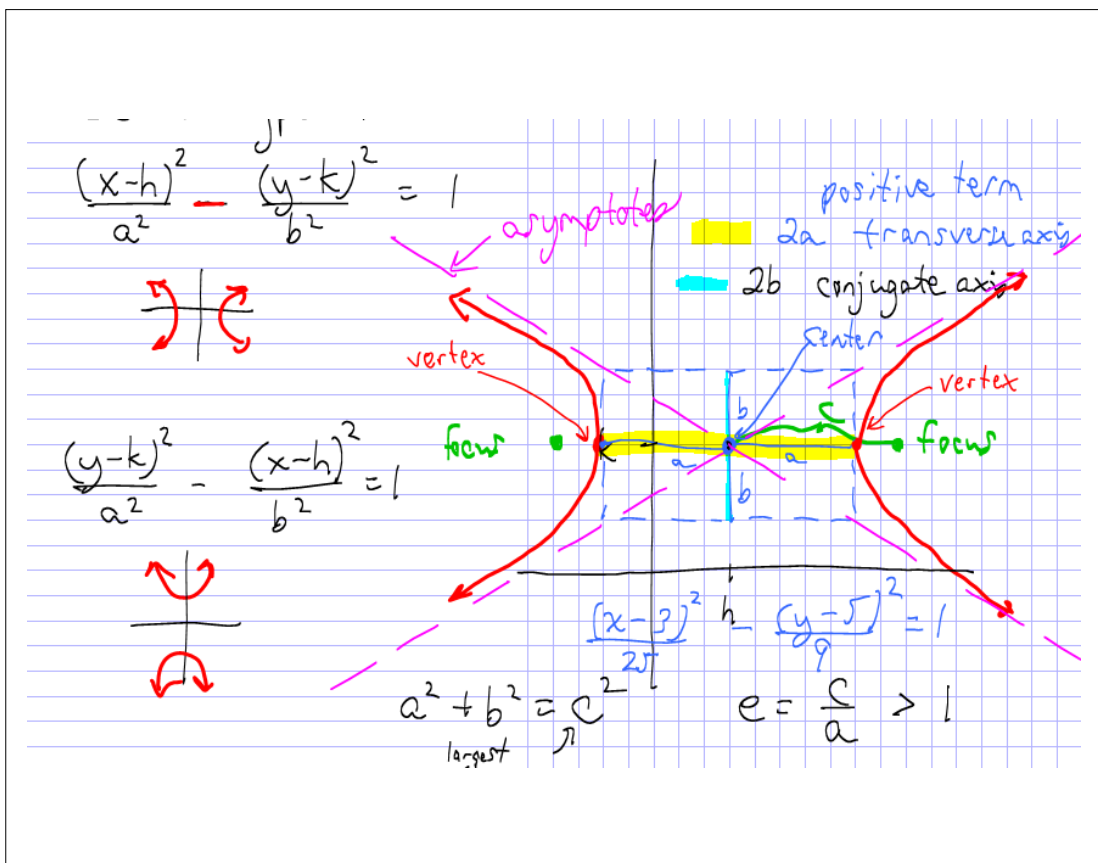 (x-h)²/a² - (y-k)²/b² = 1
asymptotes
positive term
2a transverse axis
2b conjugate axis
center
vertex
vertex
b
c
focus
focus
k
a
a
b
(y-k)²/a² - (x-h)²/b² = 1
h
(x-3)²/25 - (y-5)²/9 = 1
a² + b² = c²
largest
e = c/a > 1